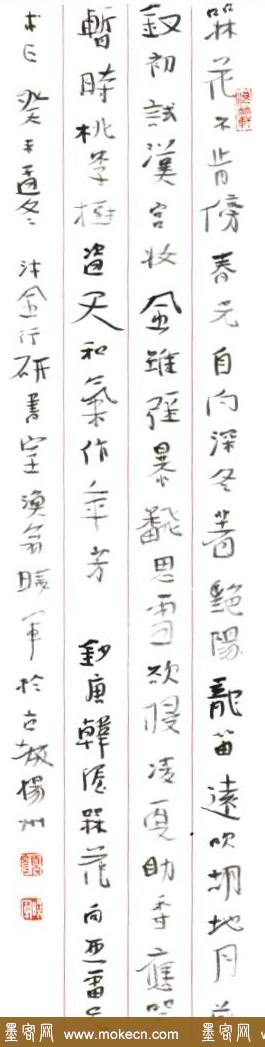 槑花不肯傍春光自向深冬著艷陽龍笛遠吹胡地月
釵初試漢宮妝風雖强暴飜思雪欲侵凌更助香應
暫時桃李樹盜天和氣作年芳 鈔唐韓偓槑花
癸未 冬 沐金行研書室漁翁 軍於古 揚州
墨客网 www.mokecn.com 墨客网